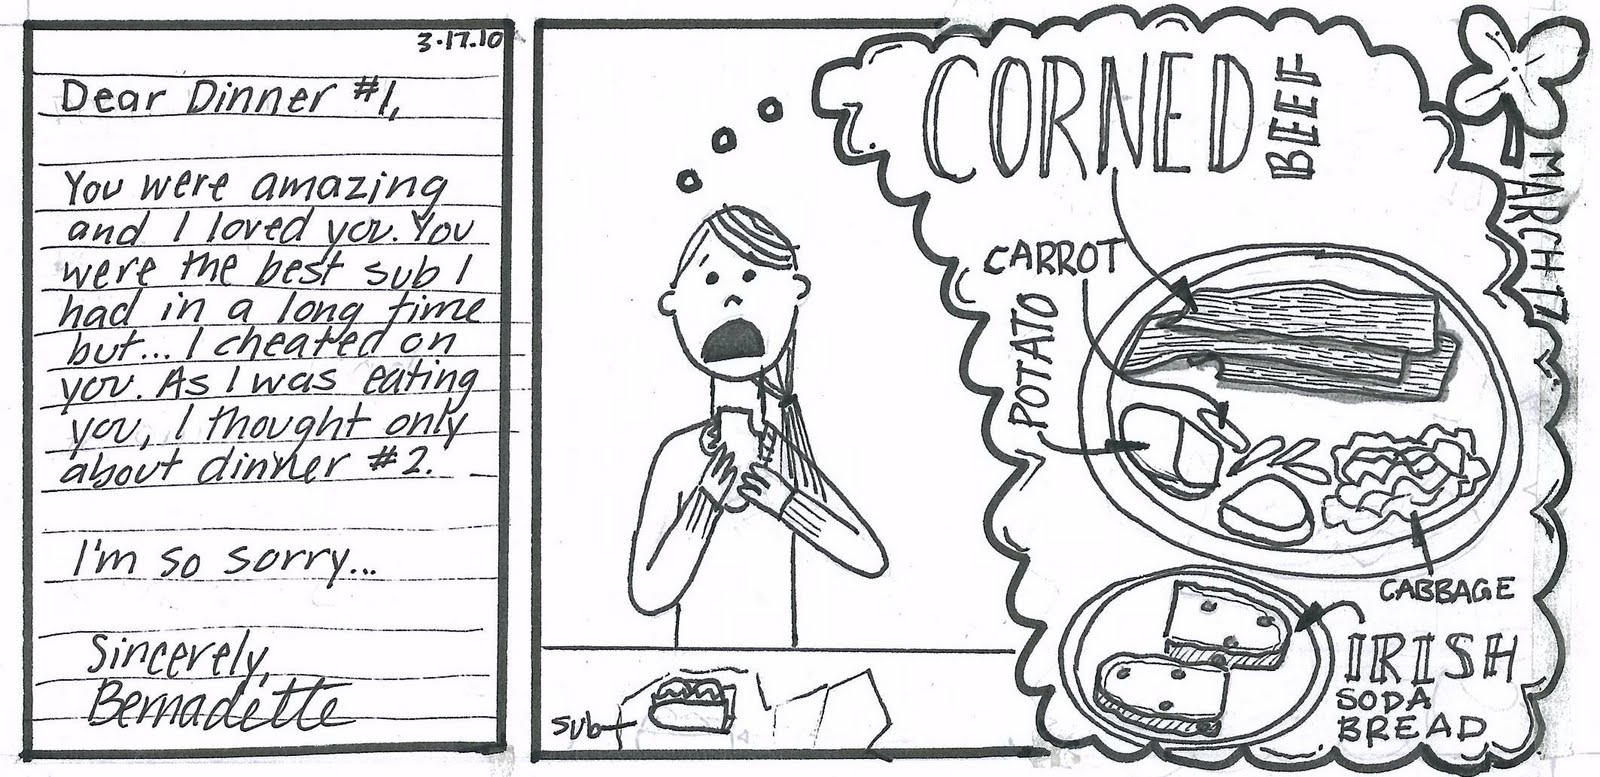 3.17.10
Dear Dinner #1,
You were amazing
and I loved you. You
were the best sub I
had in a long time
but... I cheated on
you. As I was eating
you, I thought only
about dinner #2.
I'm so sorry...
Sincerely,
Bernadette
CORNED
BEEF
MARCH 17
CARROT
POTATO
CABBAGE
IRISH
SODA
BREAD
sub